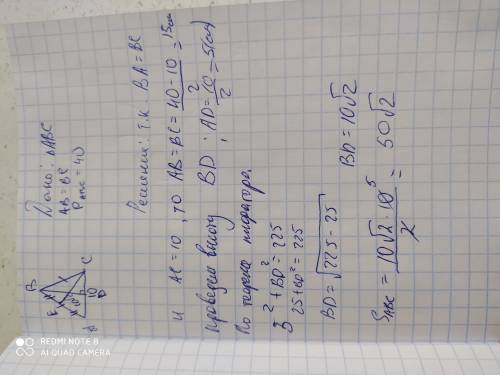 Дано: ΔABC
AB = BC
P ABC = 40
B
A
C
10
D
Решение: т.к. BA = BC
и AC = 10, то AB = BC = (40-10)/2 = 15см
Проведем высоту BD; AD = 10/2 = 5(см)
По теореме пифагора.
5² + BD² = 225
25 + BD² = 225
BD = √(225 - 25)
BD = 10√2
S ABC = (10√2 · 10 5)/2 = 50√2
REDMI NOTE 8
AI QUAD CAMERA